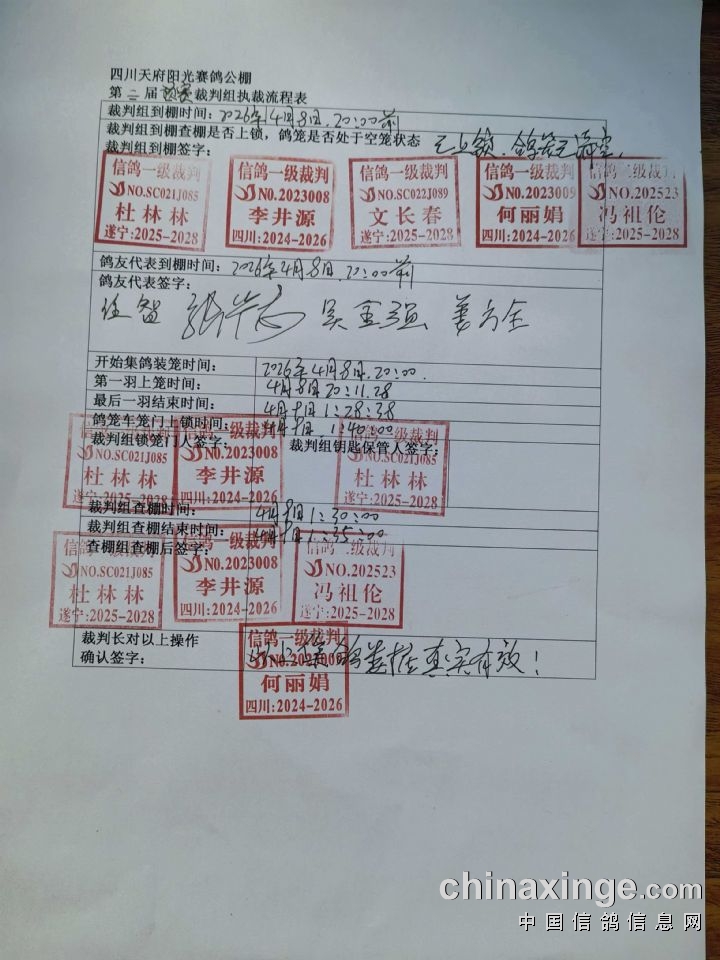 四川天府阳光赛鸽公棚
第二届预赛裁判组执裁流程表
裁判组到棚时间：2026年4月8日.20:00前
裁判组到棚查棚是否上锁，鸽笼是否处于空笼状态 已上锁.鸽笼已清空.
裁判组到棚签字：
信鸽一级裁判 NO.SC021J085 杜林林 遂宁:2025-2028
信鸽一级裁判 NO.2023008 李井源 四川:2024-2026
信鸽一级裁判 NO.SC022J089 文长春 遂宁:2025-2028
信鸽一级裁判 NO.2023009 何丽娟 四川:2024-2026
信鸽二级裁判 NO.202523 冯祖伦 遂宁:2025-2028
鸽友代表到棚时间：2026年4月8日.20:00前
鸽友代表签字：
吴金强
开始集鸽装笼时间： 2026年4月8日.20:00.
第一羽上笼时间： 4月8日20:11.28
最后一羽结束时间： 4月9日1:28:38
鸽笼车笼门上锁时间： 4月9日 1:40:00
裁判组锁笼门人签字： 裁判组钥匙保管人签字：
信鸽一级裁判 NO.SC021J085 杜林林 遂宁:2025-2028
信鸽一级裁判 NO.2023008 李井源 四川:2024-2026
信鸽一级裁判 NO.SC021J085 杜林林 遂宁:2025-2028
裁判组查棚时间： 4月9日1:30:00
裁判组查棚结束时间： 4月9日1:35:00
查棚组查棚后签字：
信鸽一级裁判 NO.SC021J085 杜林林 遂宁:2025-2028
信鸽一级裁判 NO.2023008 李井源 四川:2024-2026
信鸽二级裁判 NO.202523 冯祖伦 遂宁:2025-2028
裁判长对以上操作
确认签字： 数据真实有效！
信鸽一级裁判 NO.2023009 何丽娟 四川:2024-2026
chinaxinge.com
中国信鸽信息网